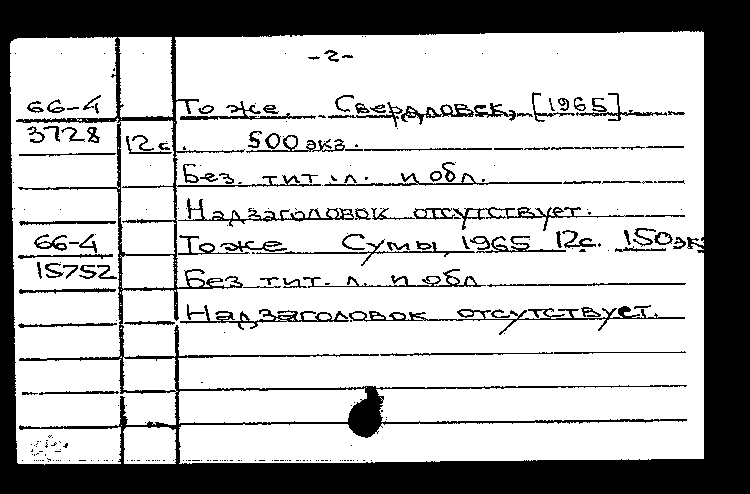 -2-
66-4 То же. Свердловск, [1965].
3728 12 с. 500 экз.
Без. тит. л. и обл.
Надзаголовок отсутствует.
66-4 То же Сумы, 1965 12с. 150 экз
15752 Без тит. л. и обл
Надзаголовок отсутствует.